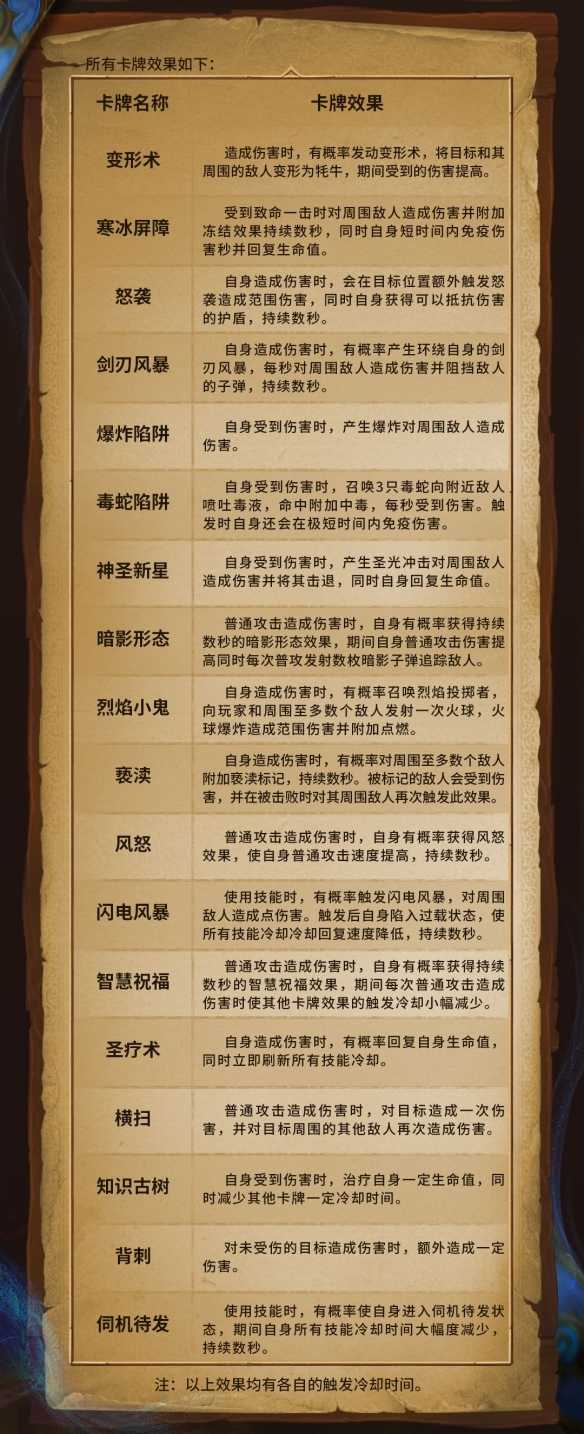 所有卡牌效果如下：
卡牌名称
卡牌效果
变形术
造成伤害时，有概率发动变形术，将目标和其
周围的敌人变形为牦牛，期间受到的伤害提高。
寒冰屏障
受到致命一击时对周围敌人造成伤害并附加
冻结效果持续数秒，同时自身短时间内免疫伤
害秒并回复生命值。
怒袭
自身造成伤害时，会在目标位置额外触发怒
袭造成范围伤害，同时自身获得可以抵抗伤害
的护盾，持续数秒。
剑刃风暴
自身造成伤害时，有概率产生环绕自身的剑
刃风暴，每秒对周围敌人造成伤害并阻挡敌人
的子弹，持续数秒。
爆炸陷阱
自身受到伤害时，产生爆炸对周围敌人造成
伤害。
毒蛇陷阱
自身受到伤害时，召唤3只毒蛇向附近敌人
喷吐毒液，命中附加中毒，每秒受到伤害。触
发时自身还会在极短时间内免疫伤害。
神圣新星
自身受到伤害时，产生圣光冲击对周围敌人
造成伤害并将其击退，同时自身回复生命值。
暗影形态
普通攻击造成伤害时，自身有概率获得持续
数秒的暗影形态效果，期间自身普通攻击伤害提
高同时每次普攻发射数枚暗影子弹追踪敌人。
烈焰小鬼
自身造成伤害时，有概率召唤烈焰投掷者，
向玩家和周围至多数个敌人发射一次火球，火
球爆炸造成范围伤害并附加点燃。
亵渎
自身造成伤害时，有概率对周围至多数个敌人
附加亵渎标记，持续数秒。被标记的敌人会受到伤
害，并在被击败时对其周围敌人再次触发此效果。
风怒
普通攻击造成伤害时，自身有概率获得风怒
效果，使自身普通攻击速度提高，持续数秒。
闪电风暴
使用技能时，有概率触发闪电风暴，对周围
敌人造成点伤害。触发后自身陷入过载状态，使
所有技能冷却冷却回复速度降低，持续数秒。
智慧祝福
普通攻击造成伤害时，自身有概率获得持续
数秒的智慧祝福效果，期间每次普通攻击造成
伤害时使其他卡牌效果的触发冷却小幅减少。
圣疗术
自身造成伤害时，有概率回复自身生命值，
同时立即刷新所有技能冷却。
横扫
普通攻击造成伤害时，对目标造成一次伤
害，并对目标周围的其他敌人再次造成伤害。
知识古树
自身受到伤害时，治疗自身一定生命值，同
时减少其他卡牌一定冷却时间。
背刺
对未受伤的目标造成伤害时，额外造成一定
伤害。
伺机待发
使用技能时，有概率使自身进入伺机待发状
态，期间自身所有技能冷却时间大幅度减少，
持续数秒。
注：以上效果均有各自的触发冷却时间。